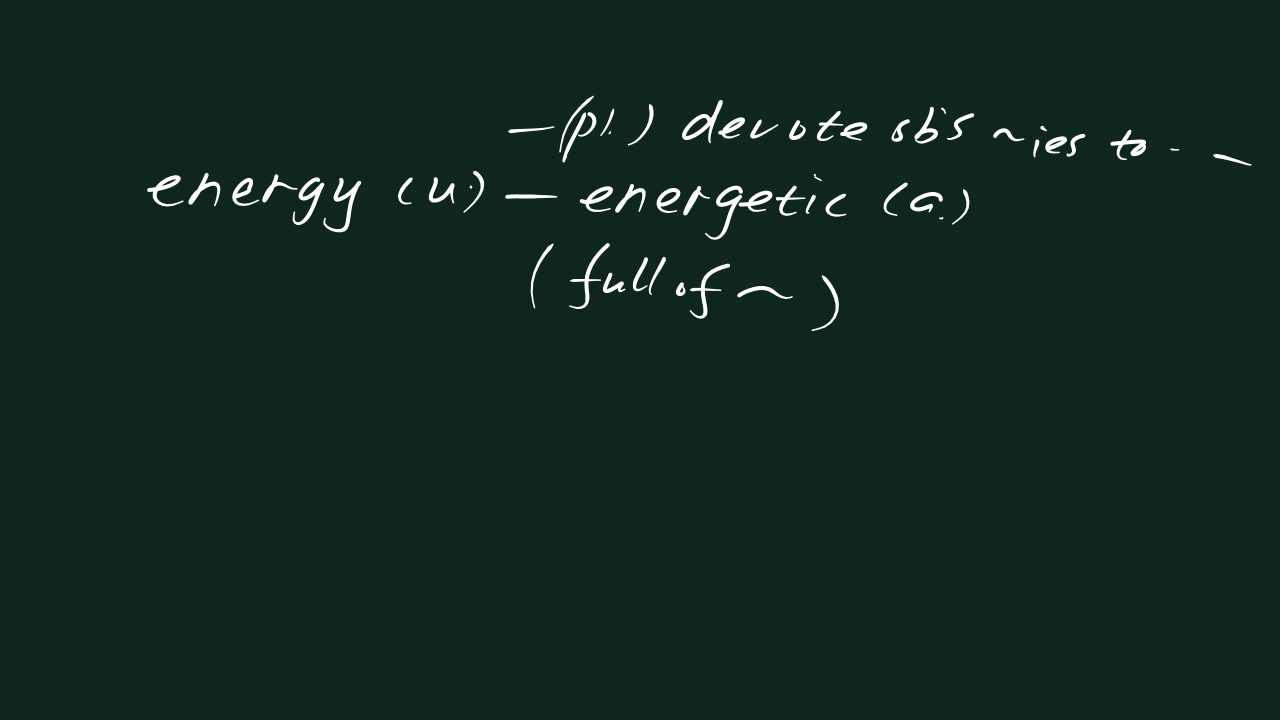 —(pl.) devote sb's ~ies to - —
energy (u.) — energetic (a.)
(full of ~)